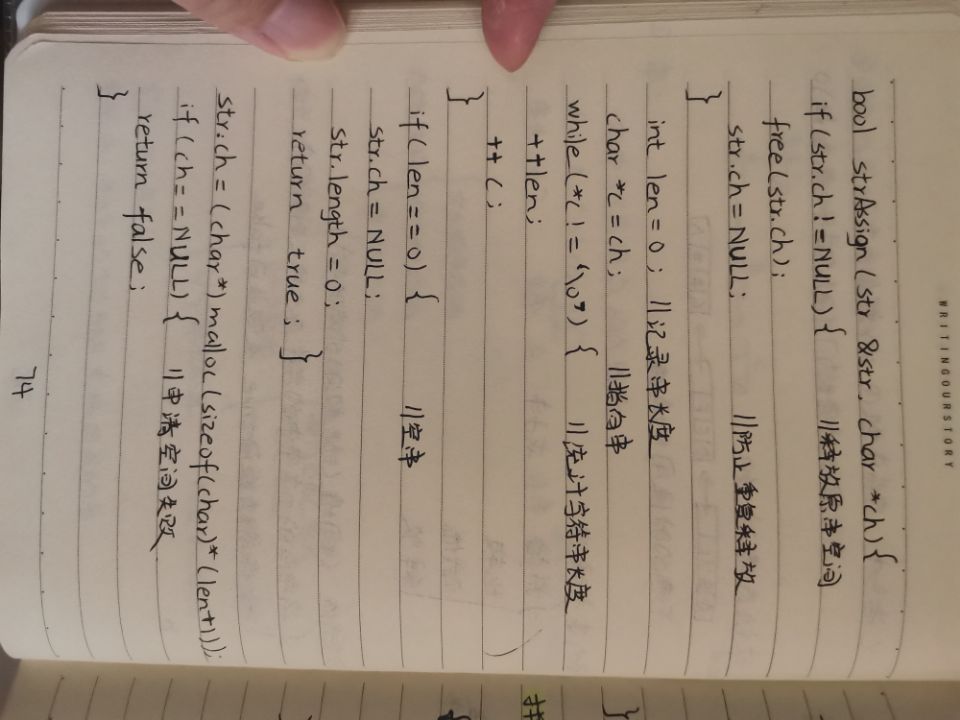 WRITINGOURSTORY
bool strAssign(str &str, char *ch){
if(str.ch!=NULL){ //释放原串空间
free(str.ch);
str.ch=NULL; //防止重复释放
}
int len=0; //记录串长度
char *c=ch; //指向串
while(*c!='\0'){ //统计字符串长度
++len;
++c;
}
if(len==0){ //空串
str.ch=NULL;
str.length=0;
return true; }
str.ch=(char*)malloc(sizeof(char)*(len+1));
if(ch==NULL){ //申请空间失败
return false;
}
74